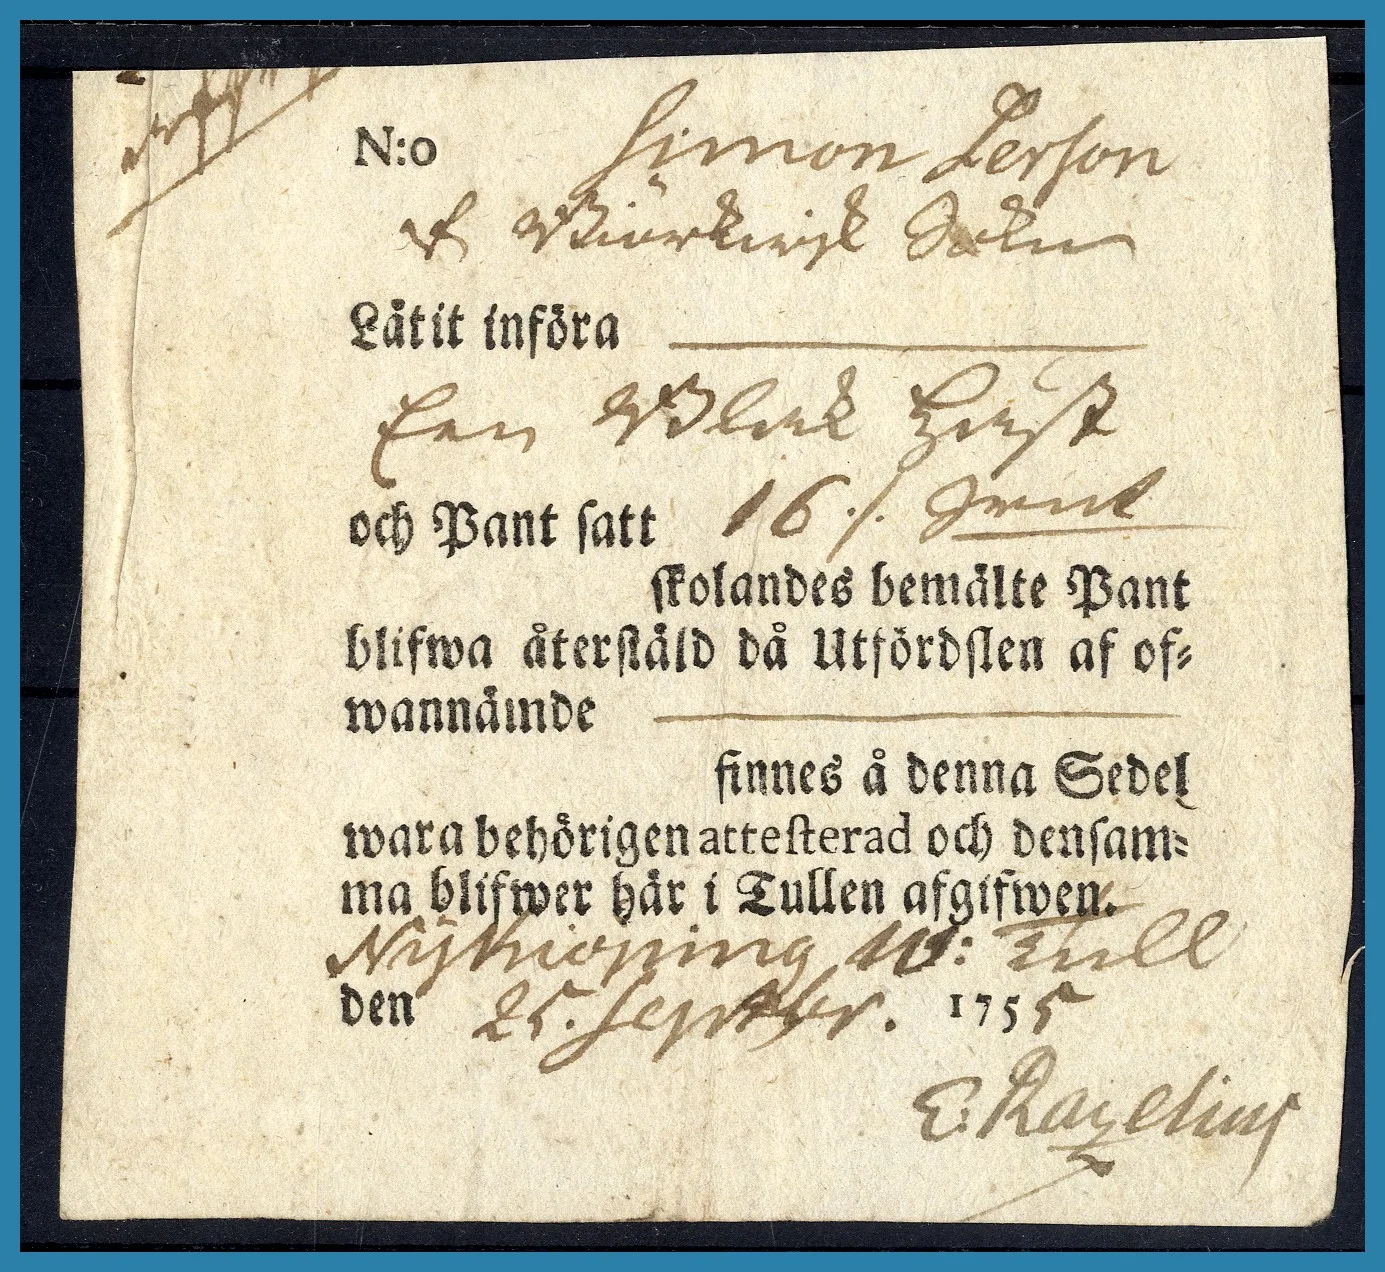 N:o Simon Person
af Biörkwik Sokn
Låtit införa
Een Black Hæst
och Pant satt 16 ./.
skolandes bemälte Pant
blifwa återstäld då Utfördslen af of-
wannämde
finnes å denna Sedel
wara behörigen attesterad och densam-
ma blifwer här i Tullen afgifwen.
Nÿkiöping W: Tull
den 25. Septbr. 1755
E: Razelius